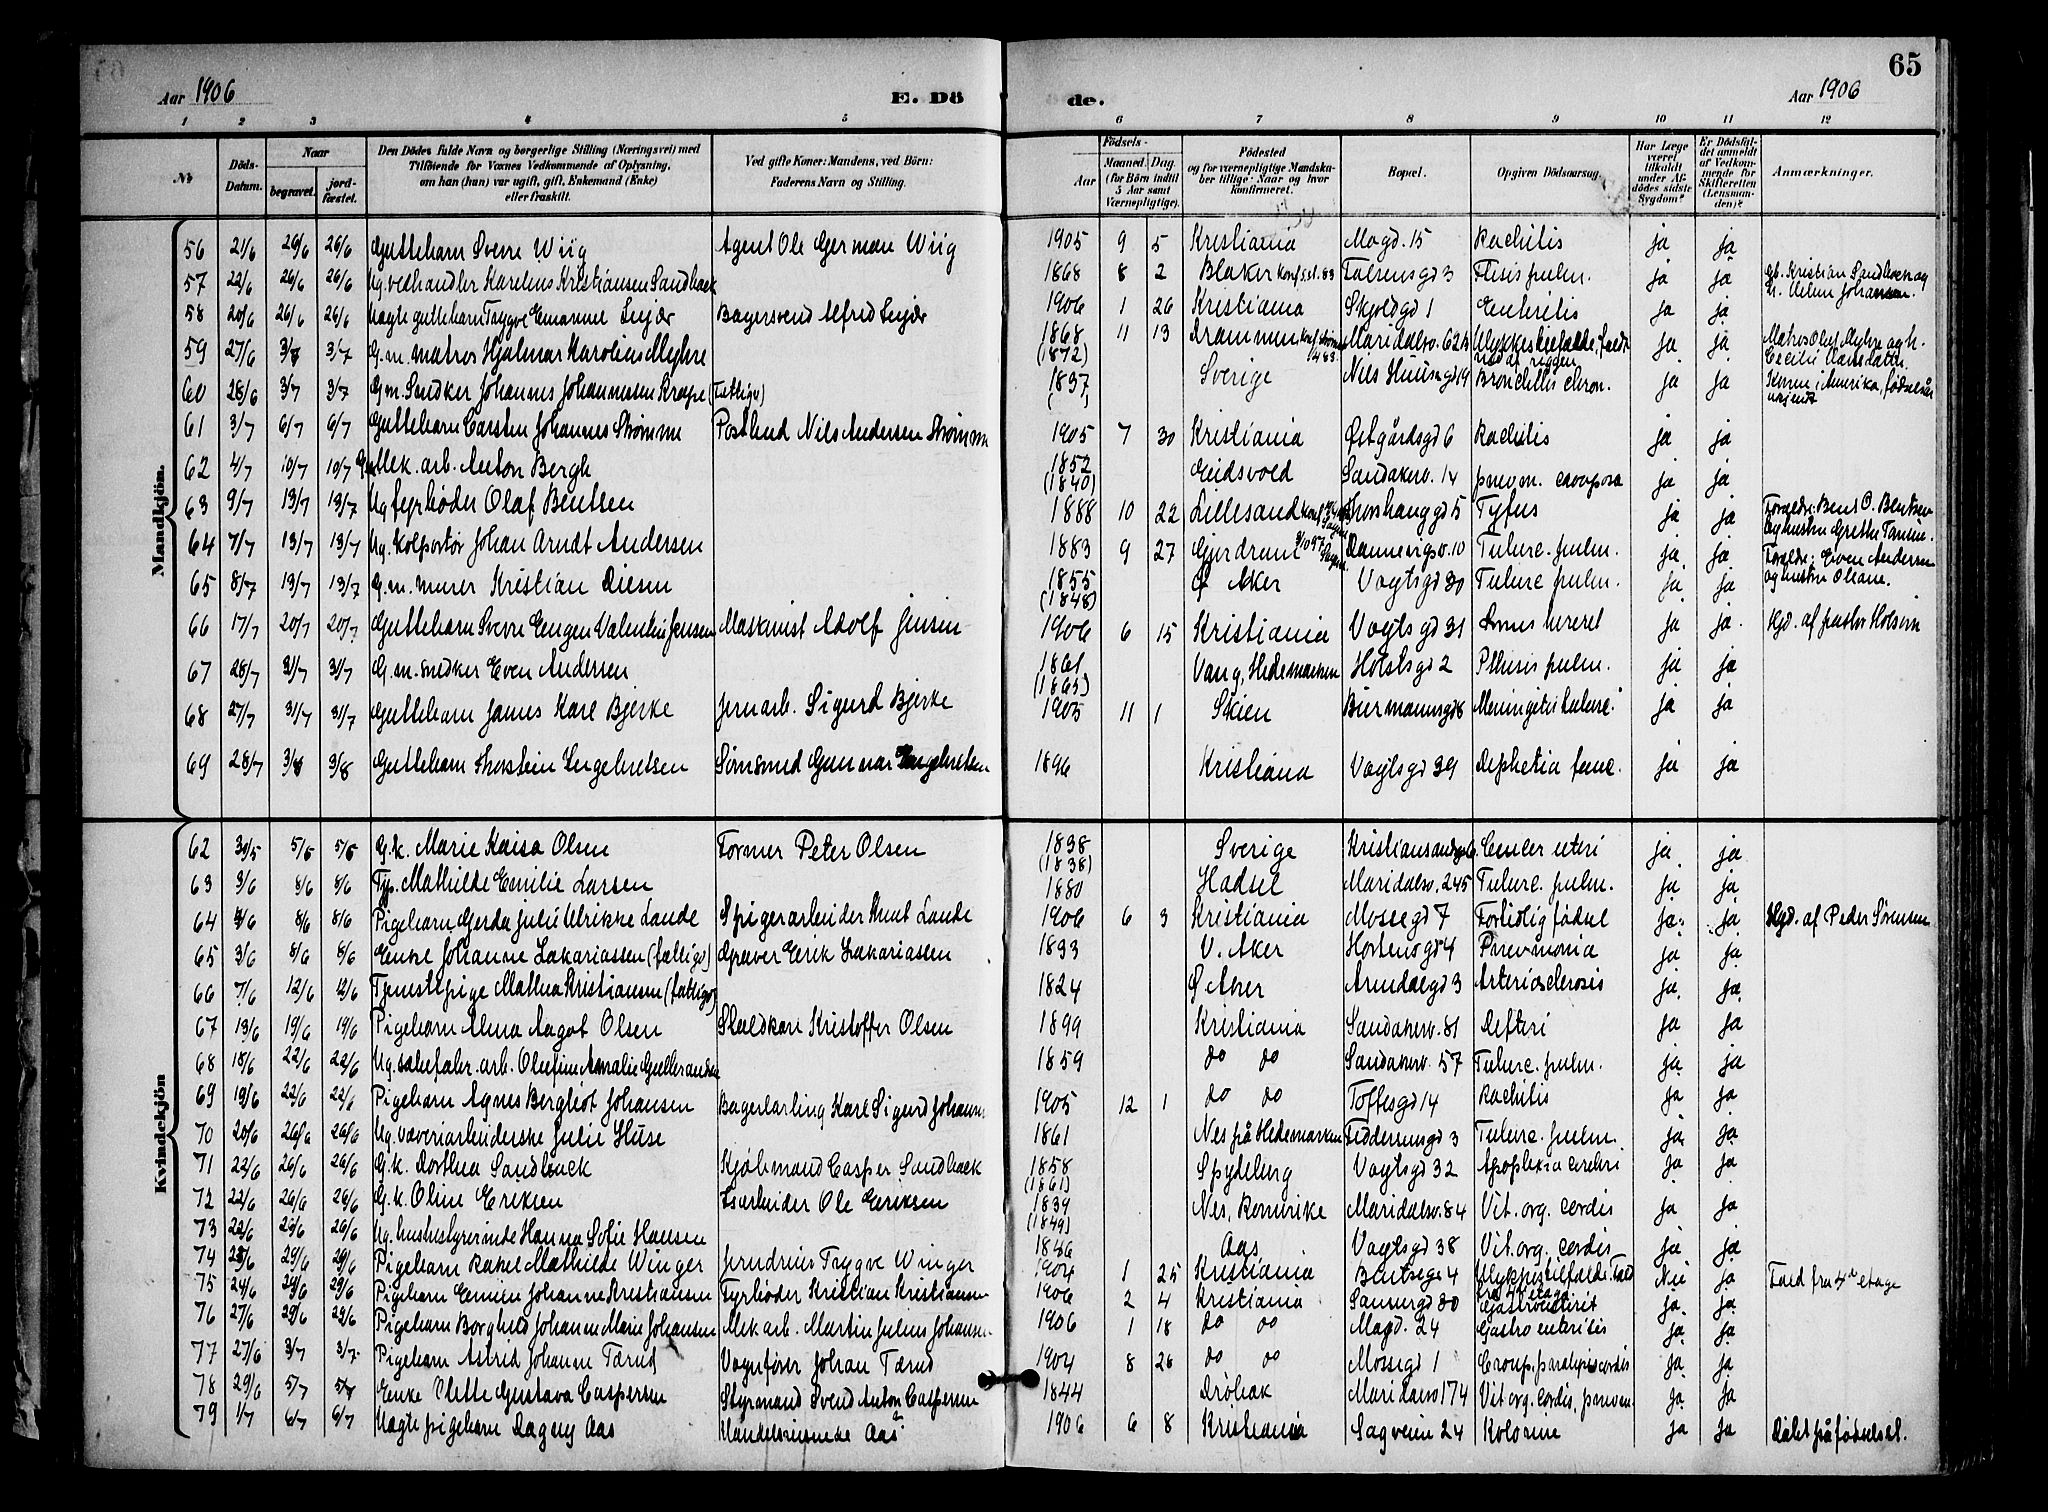 65
Aar 1906 E. Dö de. Aar 1906
1 2 3 4 5 6 7 8 9 10 11 12
№ Döds-Datum. Naar begravet. jordfæstet. Den Dödes fulde Navn og borgerlige Stilling (Næringsvei) med Tilföiende for Voxnes Vedkommende af Oplysning, om han (hun) var ugift, gift, Enkemand (Enke) eller fraskilt. Ved gifte Koner: Mandens, ved Börn: Faderens Navn og Stilling. Födsels- Aar Maaned Dag. (for Börn indtil 5 Aar samt Værnepligtige). Födested og for værnepligtige Mandskaber tillige: Naar og hvor konfirmeret. Bopæl. Opgiven Dödsaarsag. Har Læge været tilkaldt under Afdödes sidste Sygdom? Er Dödsfaldet anmeldt af Vedkommende for Skifteretten (Lensmanden)? Anmærkninger.
Mandkjön.
56 21/6 26/6 26/6 Guttebarn Sverre Wiig Agent Ole German Wiig 1905 9 5 Kristiania Magd. 15 Rachitis ja ja
57 22/6 26/6 26/6 Ug. vedhandler Karelius Kristiansen Sandbæk 1868 8 2 Blaker konf. 83 Falsensgd 3 Ftisis pulm. ja ja Gb. Kristian Sandbæk og h. Helene Johansen.
58 20/6 26/6 26/6 Uægte guttebarn Trygve Emanuel Linjær Bagersvend Alfred Linjær 1906 1 26 Kristiania Skjoldgd 1 Enteritis ja ja
59 27/6 3/7 3/7 G.m. matros Hjalmar Karolius Myhre 1868 (1872) 11 13 Drammen Maridalsv. 62 b Ulykkestilfælde, faldt ned af riggen ja ja Matros Olaf Myhre og h. Cecilie
60 28/6 3/7 3/7 G.m. Snedker Johannes Johannesen (Fattigv) 1837 ( ) Sverige Nils Huusgd 19 Bronchitis chron. ja ja Konen i Amerika, fødselsår ukjendt
61 3/7 6/7 6/7 Guttebarn Carsten Johannes Strømme Postbud Nils Andersen Strømme 1905 7 30 Kristiania Østgårdsgd 6 Rachitis ja ja
62 4/7 10/7 10/7 Gm Mek. arb. Anton Bergh 1852 (1840) Eidsvold Sandakerv. 14 pnevm. crouposa ja ja
63 9/7 13/7 13/7 Ug fyrbøder Olaf Bentsen 1888 10 22 Lillesand Thorshauggd 5 Tyfus ja ja Forældr: Bent O. Bentsen og hustru Grethe
64 7/7 13/7 13/7 Ug. Kolportør Johan Arndt Andersen 1883 9 27 Gjerdrum Dannevigsv. 10 Tuberc. pulm. ja ja Forældr: Even Andersen og hustru Oliane.
65 8/7 13/7 13/7 G.m. murer Kristian Diesen 1855 (1848) Ø Aker Vogtsgd 30 Tuberc pulm. ja ja
66 17/7 20/7 20/7 Guttebarn Sverre Eugen Valentin Jensen Maskinist Adolf Jensen 1906 6 15 Kristiania Vogtsgd 31 ja ja Hjd. af pastor
67 28/7 31/7 31/7 G.m. snedker Even Andersen 1861 (1865) Vang, Hedemarken Holstsgd 2 Pthisis pulm. ja ja
68 27/7 31/7 31/7 Guttebarn James Karl Bjerke Jernarb. Sigurd Bjerke 1905 11 1 Skien Biermannsgd 8 Meningitis tuberc. ja ja
69 28/7 3/8 3/8 Guttebarn Thorstein Engebretsen Gunnar Engebretsen 1896 Kristiania Vogtsgd 39 Diphetia fauc. ja ja
Kvindekjön
62 30/5 5/6 5/6 G.k. Marie Kaisa Olsen Former Peter Olsen 1838 (1838) Sverige Kristiansandsgd Cancer uteri ja ja
63 3/6 8/6 8/6 Tjp. Mathilde Emilie Larsen 1880 Hadsel Maridalsv. 245 Tuberc. pulm. ja ja
64 3/6 8/6 8/6 Pigebarn Gerda Julie Ulrikke Lande Spigerarbeider Knut Lande 1906 6 3 Kristiania Mossegd 7 Fortidlig fødsel ja ja Hjd. af Peder Sørensen
65 3/6 8/6 8/6 Enke Johanne Zakariassen (fattigv) Graver Erik Zakariassen 1833 V. Aker Hortensgd 4 Pnevmonia ja ja
66 7/6 12/6 12/6 Tjenestepige Mathea Kristiansen (fattigv) 1824 Ø Aker Arendalsgd 3 Arteriosclerosis ja ja
67 13/6 19/6 19/6 Pigebarn Alma Aagot Olsen Staldkarl Kristoffer Olsen 1899 Kristiania Sandakerv. 81 Difteri ja ja
68 18/6 22/6 22/6 Ug. arb. Olefine Amalie Gulbrandsen 1859 do do Sandakerv. 57 Tuberc. pulm. ja ja
69 19/6 22/6 22/6 Pigebarn Agnes Bergliot Johansen Bagerlærling Karl Sigurd Johansen 1905 12 1 do do Toftesgd 14 Rachitis ja ja
70 20/6 26/6 26/6 Ug. væveriarbeiderske Julie Huse 1861 Nes på Hedemarken Feddersensgd 3 Tuberc. pulm. ja ja
71 22/6 26/6 26/6 G.k. Dorthea Sandbæk Kjøbmand Casper Sandbæk 1858 (1861) Spydeberg Vogtsgd 32 Apoplexia cerebri ja ja
72 22/6 26/6 26/6 G.k. Oline Eriksen Ole Eriksen 1839 (1849) Nes, Romerike Maridalsv. 84 Vit. org. cordis ja ja
73 22/6 26/6 26/6 Ug. husbestyrerinde Hanna Sofie Hansen 1846 Aas Vogtsgd 38 Vit. org. cordis ja ja
74 23/6 29/6 29/6 Pigebarn Rakel Mathilde Winger Jerndreier Trygve Winger 1904 1 25 Kristiania Bentsegd 4 Ulykkestilfælde. Fald fra 4de etage Nei ja Fald fra 4de etage
75 24/6 29/6 29/6 Pigebarn Emilie Johanne Kristiansen Fyrbøder Kristian Kristiansen 1906 2 4 Kristiania Sannergd 30 Gastroenterit ja ja
76 27/6 29/6 29/6 Pigebarn Borghild Johanne Marie Johansen Mek arb. Martin Julius Johansen 1906 1 18 do do Magd. 24 Gastro enteritis ja ja
77 27/6 3/7 3/7 Pigebarn Astrid Johanne Tærud Vognfører Johan Tærud 1904 8 26 do do Mossegd 1 Croup, paralysis cordis ja ja
78 29/6 5/7 5/7 Enke Olette Gustava Caspersen Styrmand Svend Anton Caspersen 1844 Drøbak Maridalsv 174 Vit org. cordis, pnevm ja ja
79 1/7 6/7 6/7 Uægte pigebarn Dagny Aas Handelsreisende Aas 1906 6 8 Kristiania Sagveien 24 Kolerine ja ja Døbt på fødselsst.